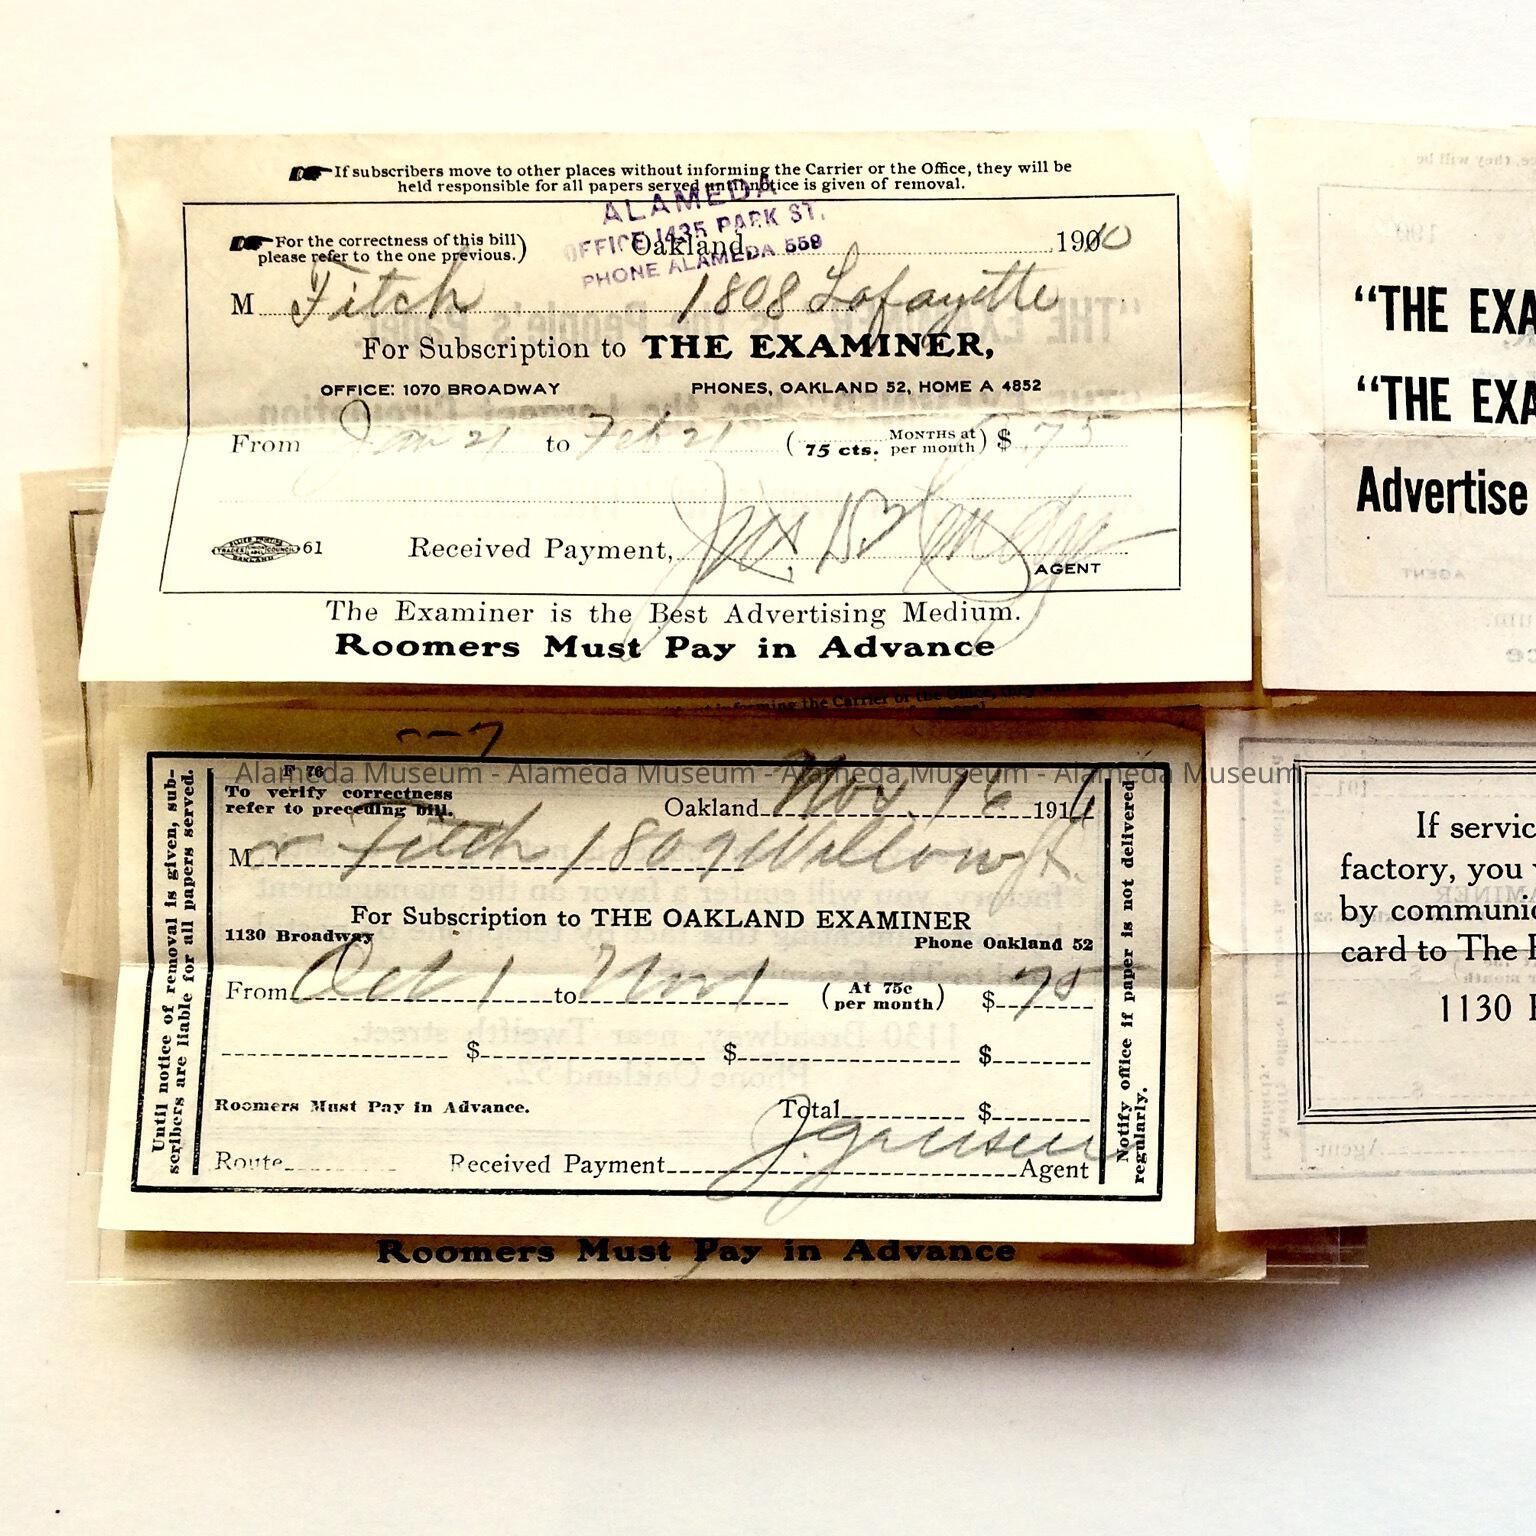 If subscribers move to other places without informing the Carrier or the Office, they will be
held responsible for all papers served until notice is given of removal.
ALAMEDA
OFFICE 1435 PARK ST.
PHONE ALAMEDA 559
For the correctness of this bill)
please refer to the one previous.)
Oakland 1910
M Fitch 1808 Lafayette
For Subscription to THE EXAMINER,
OFFICE: 1070 BROADWAY PHONES, OAKLAND 52, HOME A 4852
From Jan 21 to Feb 21 ( MONTHS at
75 cts. per month) $ .75
61 Received Payment,
AGENT
The Examiner is the Best Advertising Medium.
Roomers Must Pay in Advance
"THE EXA
"THE EXA
Advertise
Alameda Museum - Alameda Museum - Alameda Museum - Alameda Museum
Until notice of removal is given, sub-
scribers are liable for all papers served.
F 76
To verify correctness
refer to preceding bill.
Oakland Nov. 16 191
Mr Fitch 1809 Willow St.
For Subscription to THE OAKLAND EXAMINER
1130 Broadway Phone Oakland 52
From Oct 1 to Nov 1 (At 75c
per month) $ 75
$ $ $
Roomers Must Pay in Advance. Total $
Route Received Payment Agent
Notify office if paper is not delivered
regularly.
Roomers Must Pay in Advance
If servic
factory, you
by communic
card to The
1130